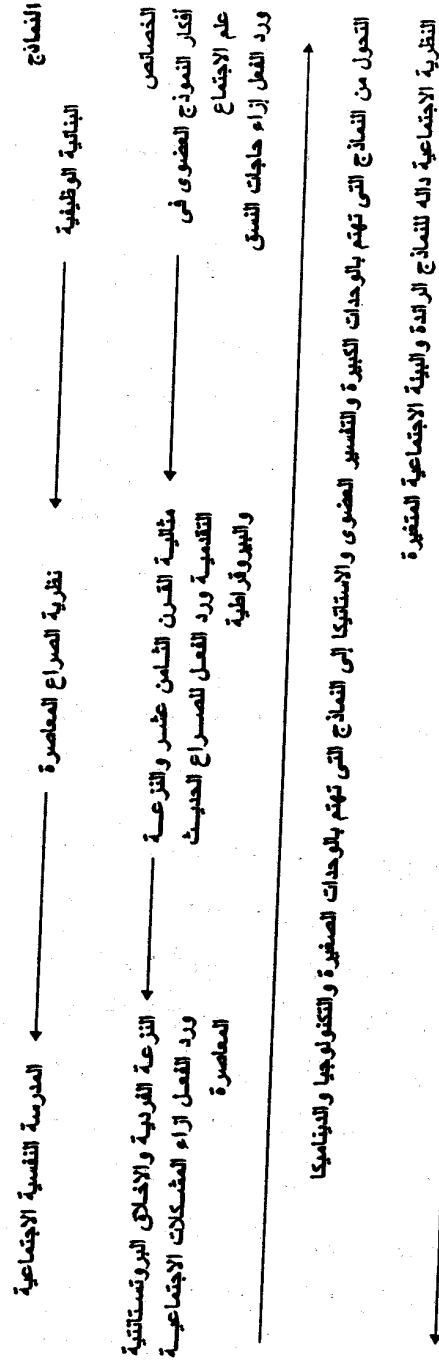 النماذج
البنائية الوظيفية
نظرية الصراع المعاصرة
المدرسة النفسية الاجتماعية
الخصائص
أفكار النموذج العضوى فى
علم الاجتماع
ورد الفعل إزاء حاجات النسق
مثالية القرن الثامن عشر والنزعة
التقدمية ورد الفعل للصراع الحديث
والبيروقراطية
النزعة الفردية والاخلاق البروتستانتية
ورد الفعل ازاء المشكلات الاجتماعية
المعاصرة
التحول من النماذج التى تهتم بالوحدات الكبيرة والتفسير العضوى والاستاتيكا إلى النماذج التى تهتم بالوحدات الصغيرة والتكنولوجيا والديناميكا
النظرية الاجتماعية داله للنماذج الرائدة والبيئة الاجتماعية المتغيرة